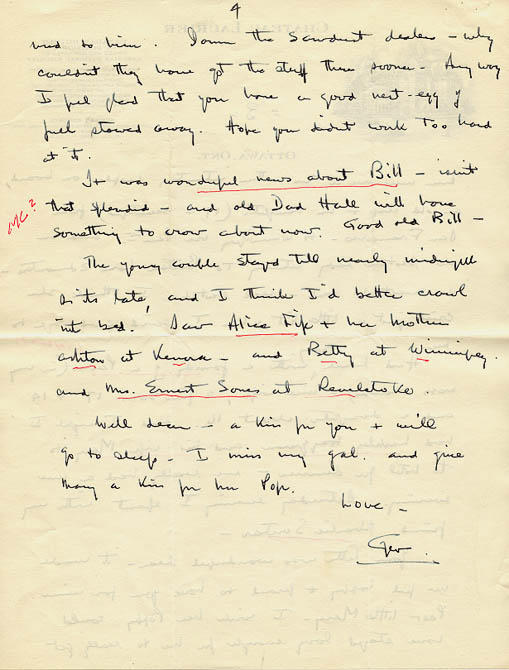 4
used to him. Damn the Sawdust dealer - why
couldn't they have got the stuff there sooner - Anyway
I feel glad that you have a good nest-egg of
fuel stowed away. Hope you didn't work too hard
at it.
It was wonderful news about Bill - isn't
that splendid - and old Dad Hall will have
something to crow about now. Good old Bill -
The young couple stayed till nearly midnight
so its late, and I think I'd better crawl
int bed. Saw Alice Fife + her mother
ashton at Kenora - and Betty at Winnipeg.
and Mrs. Ernest Sones at Revelstoke.
Well dear - a kiss for you + will
go to sleep - I miss my gal. and give
Mary a kiss for her Pop.
Love -
Gev.
CHATEAU LAURIER
OTTAWA, ONT.